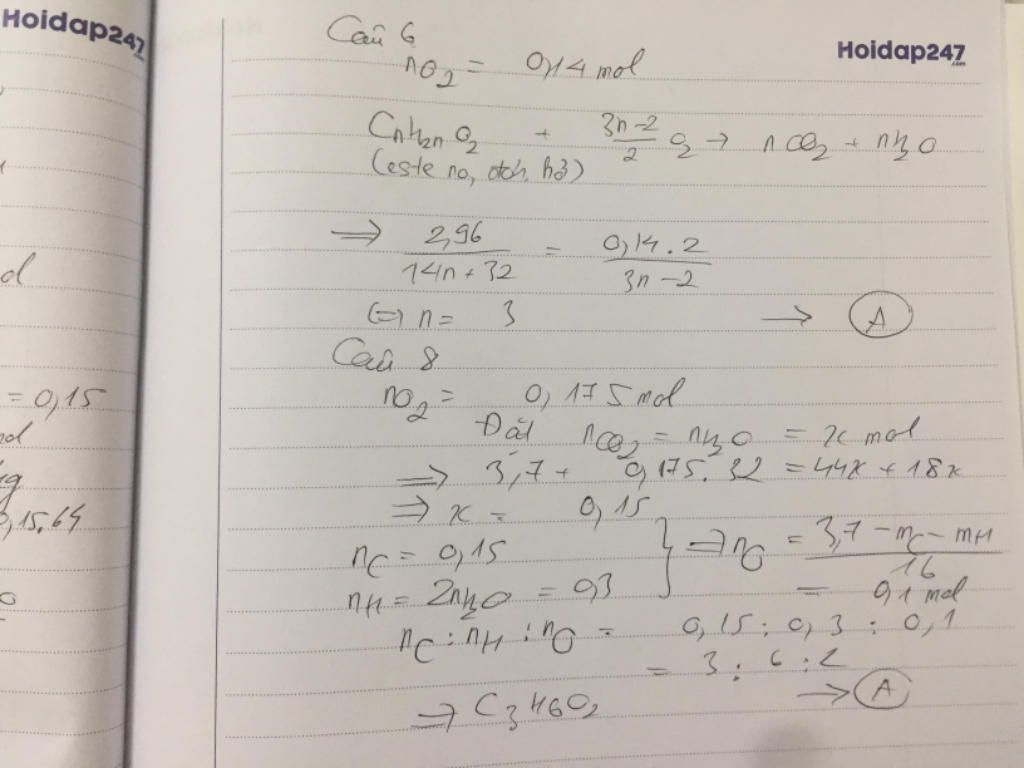 Hoidap247
.com
d
= 0,15
0,15.64
Hoidap247
.com
Câu 6
nO2 = 0,14 mol
CnH2nO2 + 3n-2/2 O2 → nCO2 + nH2O
(este no, đơn, hở)
=> 2,96/14n+32 = 0,14.2/3n-2
<=> n = 3 → A
Câu 8
nO2 = 0,175 mol
Đặt nCO2 = nH2O = x mol
=> 3,7 + 0,175.32 = 44x + 18x
=> x = 0,15
nC = 0,15
nH = 2nH2O = 0,3
} => nO = 3,7 - mC - mH/16
= 0,1 mol
nC : nH : nO = 0,15 : 0,3 : 0,1
= 3 : 6 : 2
=> C3H6O2 → A